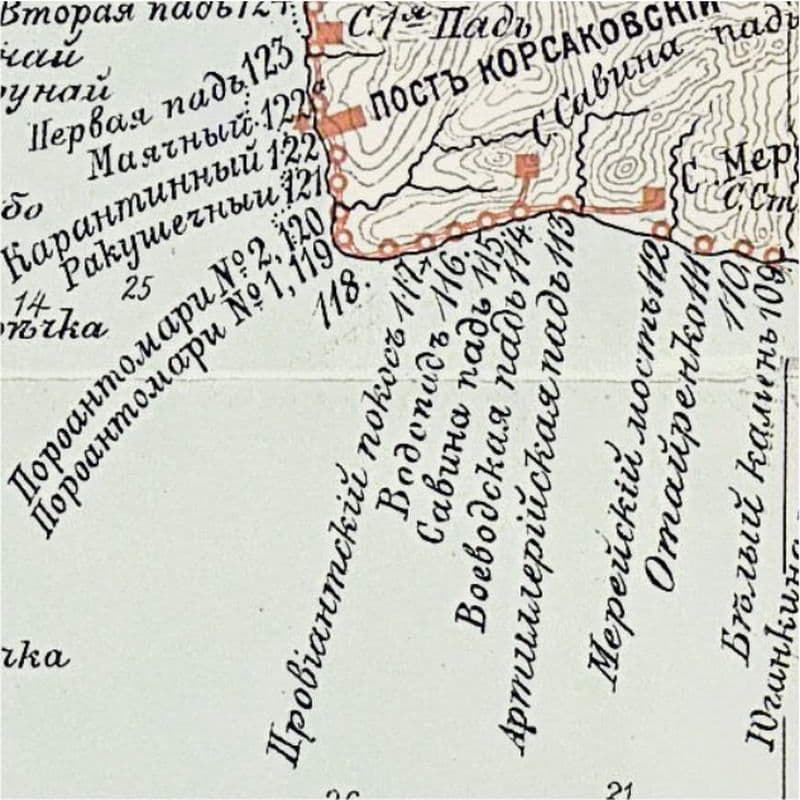 Вторая падь 124
С. 1я Падь
ПОСТЪ КОРСАКОВСКІЙ
С. Савина падь
Первая падь 123
Маячный 122а
Карантинный 122
Ракушечный 121
Пороантомари № 2, 120
Пороантомари № 1, 119
118.
Провіантскій покосъ 117
Водопадъ 116.
Савина падь 115
Воеводская падь 114
Артиллерійская падь 113
Мерейскій мостъ 112
Отайренко 111
110.
Бѣлый камень 109
Юганкина
С. Мер
С. Ст
бо
14
25
рѣчка
чка
21